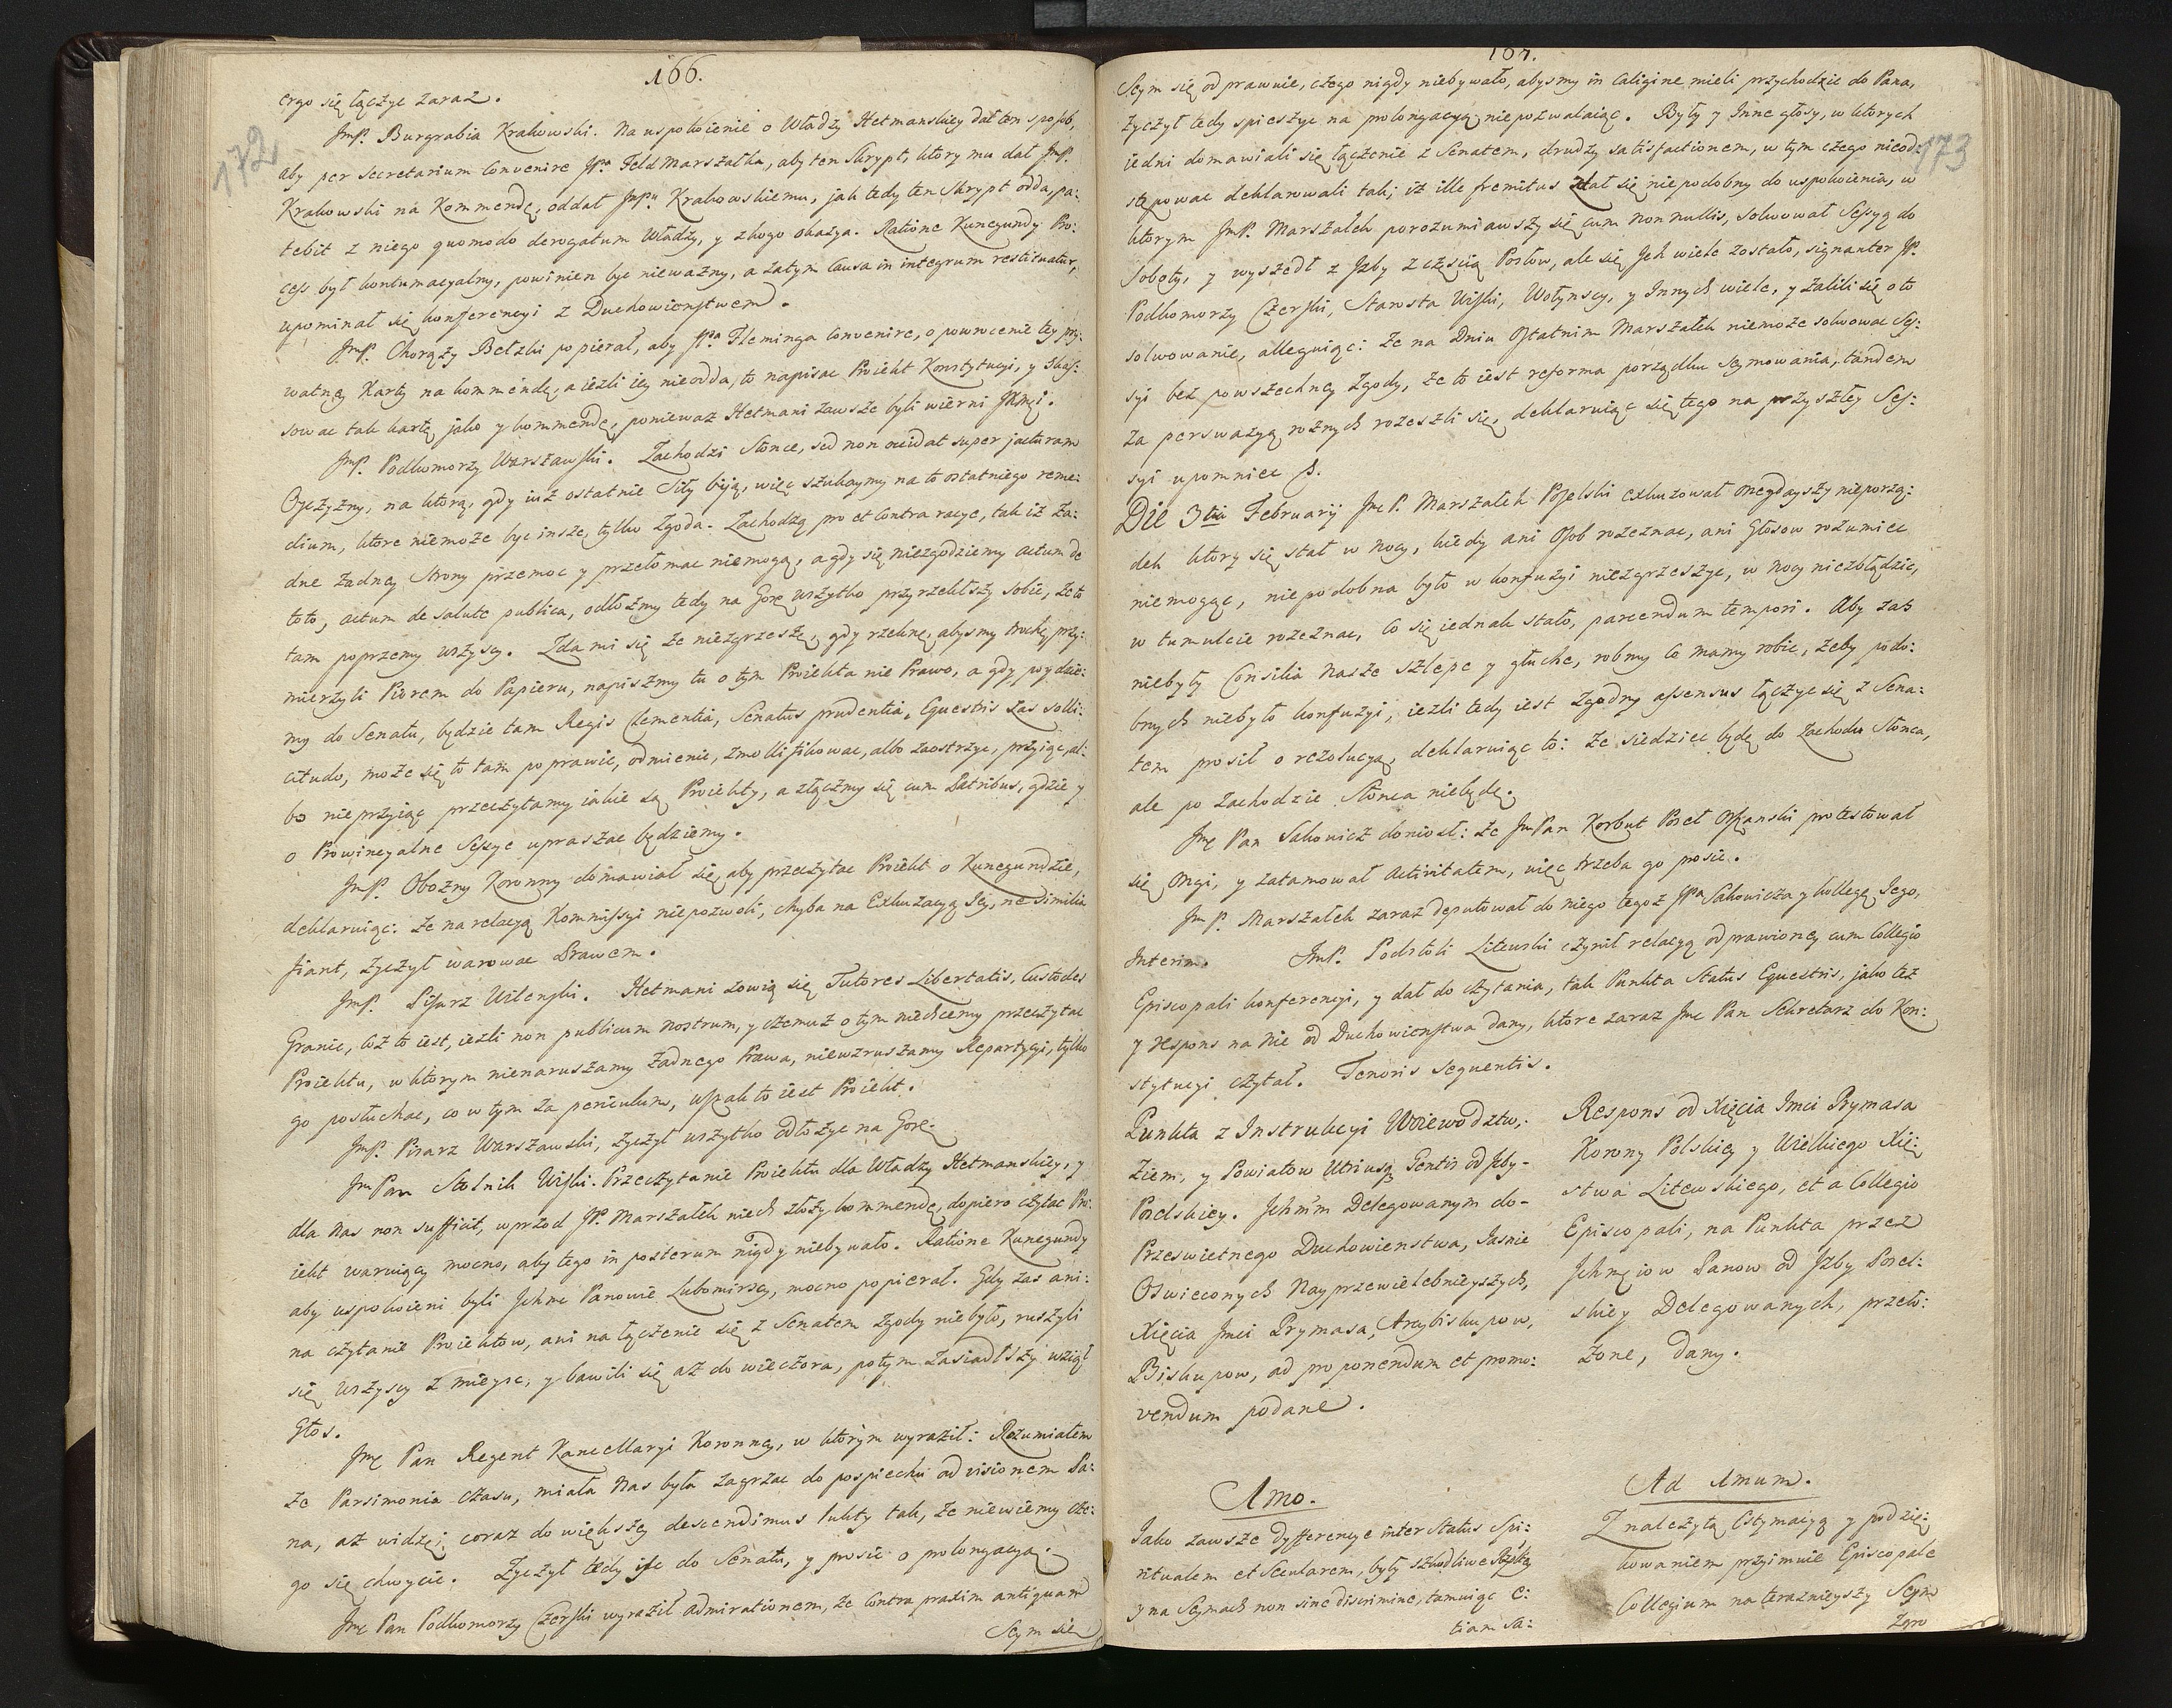 166.
172
ergo się łączyc zaraz.
JmP. Burgrabia Krakowski. Na uspokoienie o Władzy Hetmanskiey dał ten sposob,
aby per Secretarium Convenire JPa Feld Marszałka, aby ten Skrypt, ktory mu dał JmP.
Krakowski na Kommendę, oddał JmPu Krakowskiemu, jak tedy ten Skrypt odda, pa:
tebit z niego quomodo derogatum Władzy, y z kogo okazya. Ratione Kunegundy Pro:
cess był kontumacyalny, powinien byc nieważny, a zatym Causa in integrum restituatur,
upominał się konferencyi z Duchowienstwem.
JmP. Chorąży Bełzki popierał, aby JPa Fleminga Convenire, o powrocenie tey pry:
watney Karty na kommendę, a iezli iey nieodda, to napisac Proiekt Konstytucyi, y skas:
sowac tak kartę jako y kommendę, poniewaz Hetmani zawsze byli wierni
JmP. Podkomorzy Warszawski. Zachodzi Słonce, sed non occidat super jacturam
Oyczyzny, na ktorą, gdy iuz ostatnie Siły biją, więc szukaymy na to ostatniego reme:
dium, ktore niemoże byc insze, tylko Zgoda. Zachodzą pro et Contra racye, tak iz ża:
dne żadney Strony przemoc y przełomac niemogą, a gdy się niezgodziemy actum de
toto, actum de salute publica, odłożmy tedy na Gorę wszytko przyrzekłszy sobie, że to
tam poprzemy wszyscy. Zda mi się że niezgrzeszę, gdy rzeknę, abysmy trochę przy:
mierzyli Piorem do Papieru, napiszmy tu o tym Proiekta nie Prawo, a gdy poydzie:
my do Senatu, będzie tam Regis Clementia, Senatus prudentia, Equestris zas solli:
citudo, może się to tam poprawic, odmienic, zmollifikowac, albo zaostrzyc, przyiąc, al:
bo nieprzyiąc przeczytamy iakie są Proiekty, a złączmy się cum Patribus, gdzie y
o Prowincyalne Sessye upraszac będziemy.
JmP. Obozny Koronny domawiał się, aby przeczytac Proiekt o Kunegundzie,
deklaruiąc: że na relacyą Kommissyi niepozwoli, chyba na Exkuzacyą Jey, ne Similia
fiant, życzył warowac Prawem.
JmP. Pisarz Wilenski. Hetmani zowią się Tutores Libertatis, Custodes
Granic, Coż to iest, iezli non publicum nostrum, y czemuż o tym niechcemy przeczytac
Proiektu, w ktorym nienaruszamy żadnego Prawa, niewzruszamy Repartycyi, tylko
go posłuchac, co w tym za periculum, wszak to iest Proiekt.
JmP. Pisarz Warszawski, życzył wszytko odłożyc na Gorę.
JmPan Stolnik Wiski. Przeczytanie Proiektu dla Władzy Hetmanskiey, y
dla nas non sufficit, wprzod JP. Marszałek niech złoży kommendę, dopiero czytac Pro:
iekt waruiący mocno, aby tego in posterum nigdy niebywało. Ratione Kunegundy
aby uspokoieni byli Ichmc Panowie Lubomirscy, mocno popierał. Gdy zas ani:
na czytanie Proiektow, ani na łączenie się z Senatem Zgody niebyło, ruszyli
się wszyscy z mieysc, y bawili się aż do wieczora, potym zasiadłszy wziął
Głos.
Jmc Pan Regent Kancellaryi Koronney, w ktorym wyraził: Rozumiałem
że Parsimonia Czasu, miała nas była zagrzac do pospiechu ad visionem Pa:
na, aż widzę, coraz do większey descendimus tak, że niewiemy cze:
go się chwycic. Życzył tedy isc do Senatu, y prosic o prolongacyą.
Jmc Pan Podkomorzy Czerski wyraził admirationem, że Contra praxim antiquam
Seym się
167.
173
Seym się odprawuie, czego nigdy niebywało, abysmy in Caligine mieli przychodzic do Pana,
życzył tedy spieszyc na prolongacyą niepozwalaiąc. Były y Inne głosy, w ktorych
iedni domawiali się łączenie z Senatem, drudzy satisfactionem, w tym czego nieod:
stępowac deklarowali tak, iż ille fremitus stał się niepodobny do uspokoienia, w
ktorym JmP. Marszałek porozumiawszy się cum nonnullis, solwował Sessyą do
Soboty, y wyszedł z Jzby z częscią Posłow, ale się Jch wiele zostało, signanter JP.
Podkomorzy Czerski, Starosta Wiski, Wołynscy, y Innych wiele, y żalili się o to
solwowanie, alleguiąc: że na Dniu Ostatnim Marszałek niemoże solwowac Ses:
syi bez powszechney Zgody, że to iest reforma porządku Seymowania, tandem
za perswazyą rożnych rozeszli się, deklaruiąc się tego na przyszłey Ses:
syi upomniec s.
Die 3tia Februarij Jmc P. Marszałek Poselski exkuzował onegdayszy nieporzą:
dek ktory się stał w nocy, kiedy ani Osob rozeznac, ani Głosow rozumiec
niemogąc, niepodobna było w konfuzyi niezgrzeszyc, w nocy niezbłądzic,
w tumulcie rozeznac, Co się iednak stało, parcendum tempori. Aby zas
niebyły Consilia nasze szlepe y głuche, robmy Co mamy robic, żeby podo:
bnych niebyło konfuzyi, iezli tedy iest Zgodny assensus łączyc się z Sena:
tem prosił o rezolucyą, deklaruiąc to: że siedziec będę do Zachodu Słonca,
ale po Zachodzie Słonca niebędę.
Jmc Pan Sakowicz doniosł: że JmPan Korbut Poseł Oszmanski protestował
się Ongi, y zatamował activitatem, więc trzeba go prosic.
JmP. Marszałek zaraz deputował do niego tegoż JPa Sakowicza y kollegę Jego,
Interim. JmP. Podstoli Litewski czynił relacyą odprawioney cum Collegio
Episcopali konferencyi, y dał do czytania, tak Punkta Status Equestris, jako też
y respons na nie od Duchowienstwa dany, ktore zaraz Jmc Pan Sekretarz do Kon:
stytucyi czytał. Tenoris sequentis.
Punkta z Instrukcyi Woiewodztw,
Ziem, y Powiatow Utriusq Gentis od Jzby
Poselskiey. Jchm'm Delegowanym do
Przeswietnego Duchowienstwa, Jasnie
Oswieconych Nayprzewielebnieyszych,
Xięcia Jmci Prymasa, Arcybiskupow,
Biskupow, ad proponendum et promo:
vendum podane.
Respons od Xięcia Imci Prymasa
Korony Polskiey y Wielkiego Xię:
stwa Litewskiego, et a Collegio
Episcopali, na Punkta przez
Jchmciow Panow od Jzby Posel:
skiey Delegowanych, przeło:
żone, dany.
1mo.
Jako zawsze dyfferencye inter Status Spi:
ritualem et Secularem, były szkodliwe Rzpltey
y na Seymach non sine discrimine, tamuiąc e:
tiam Sa:
Ad 1mum.
Znależytą Estymacyą y podzię:
kowaniem przyimuie Episcopale
Collegium na teraznieyszy Seym